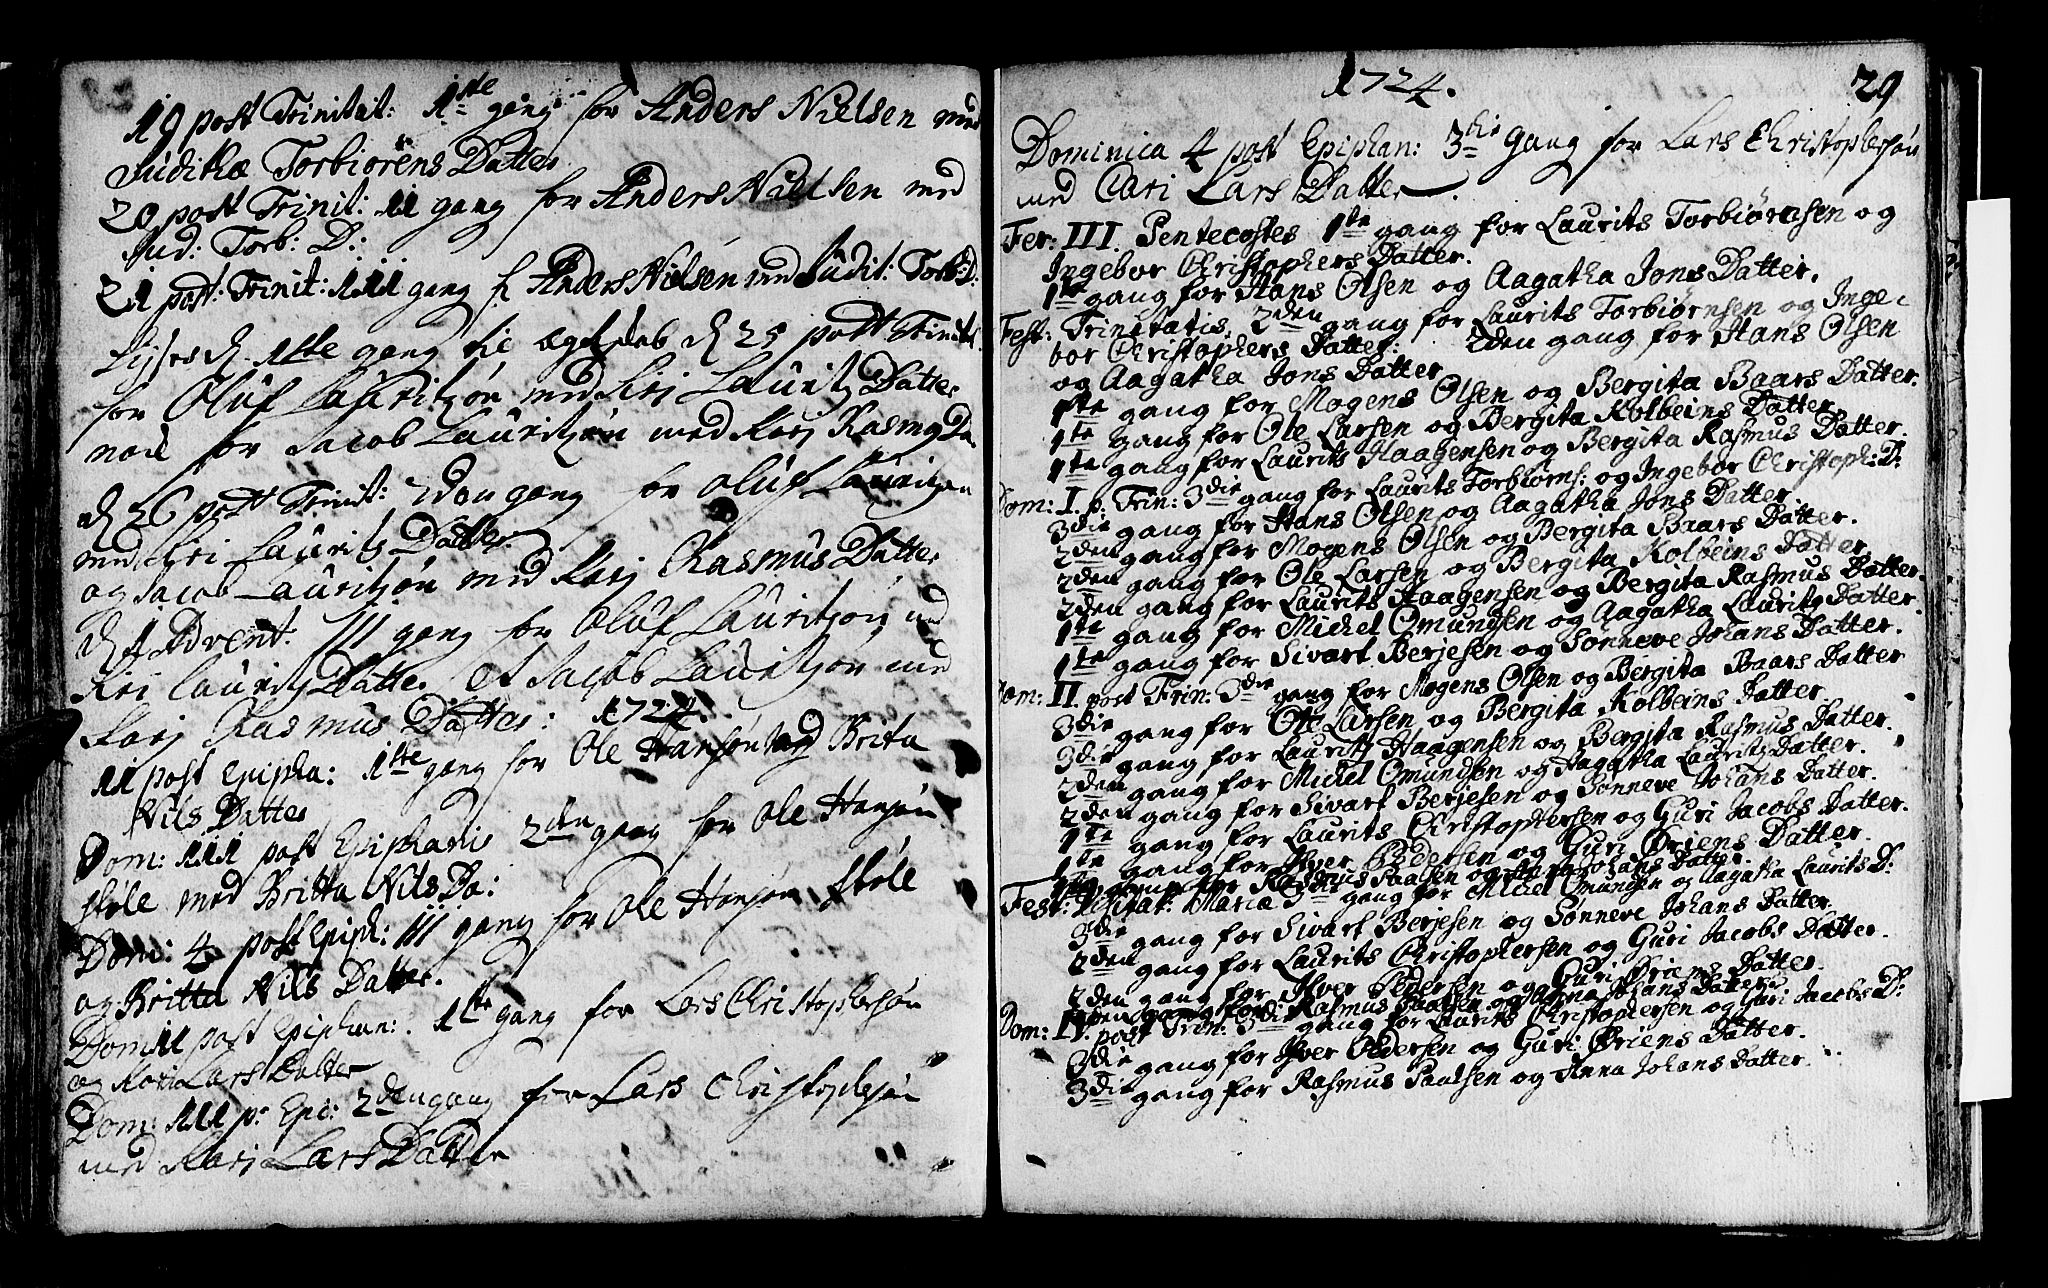 19 post Trinitat: 1ste gang for Anders Nielsen med
Judithæ Torbiørens Datter
20 post Trinit: 11 gang for Anders Nielsen med
Jud: Torb: D:
21 post: Trinit: 111 gang f Anders Nielsen med Judit: Torb: D:
Lysses d. 1ste gang til egteskab d 25 postt Trinit
for Oluf Lauritzøn med Siri Lauritz Datter
nock for Jacob Lauritzøn med Karj Rasmus Da
d 26 postt Trinit: 2den gang for Oluf Lauritzøn
med Siri Lauritz Datter
og Jacob Lauritzøn med Karj Rasmus Datter
d 1 Advent. III gang for Oluf Lauritzøn med
Siri Lauritz Datter. Et Jacob Lauritzøn med
Karj Rasmus Datter: 1724.
11 post Epipha: 1ste gang for Ole Hansøn og Brita
Nils Datter
Dom: 111 post Epiphanis 2den gang for Ole Hansøn
støle med Britta Nils Da:
Dom: 4 post Epiph: III gang for Ole Hansøn støle
og Britta Nils Datter.
Dom 11 post Epiphan: 1ste gang for Lars Christophersøn
og Kari Lars Datter
Dom: 111 p: Epi: 2den gang for Lars Christophersøn
med Karj Lars Datter
1724. 29
Dominica 4 post Epiphan: 3die gang for Lars Christophersøn
med Cari Lars Datter.
Fer: III Pentecostes 1ste gang for Laurits Torbiørnsen og
Ingebor Christophers Datter.
1ste gang for Hans Olsen og Aagatha Jons Datter.
Fest: Trinitatis, 2den gang for Laurits Torbiørnsen og Inge-
bor Christophers Datter: 2den gang for Hans Olsen
og Aagatha Jons Datter
1ste gang for Mogens Olsen og Bergita Baars Datter.
1ste gang for Ole Larsen og Bergita Kolbeins Datter
1ste gang for Laurits Haagensen og Bergita Rasmus Datter.
Dom: I. p: Trin: 3die gang for Laurits Torbiørns: og Ingebor Christoph: D:
3die gang for Hans Olsen og Aagatha Jons Datter
2den gang for Mogens Olsen og Bergita Baars Datter.
2den gang for Ole Larsen og Bergita Kolbeins Datter
2den gang for Laurits Haagensen og Bergita Rasmus Datter.
1ste gang for Michel Omundsen og Aagatha Lauritz Datter.
1ste gang for Sivart Berjesen og Sønneve Johans Datter.
Dom: II post Trin: 3die gang for Mogens Olsen og Bergita Baars Datter
3die gang for Ole Larsen og Bergita Kolbeins Datter.
3die gang for Lauritz Haagensen og Bergita Rasmus Datter.
2den gang for Michel Omundsen og Aagatha Lauritz Datter.
2den gang for Sivart Berjesen og Sønneve Johans Datter.
1ste gang for Laurits Christophersen og Guri Jacobs Datter.
1ste gang for Iver Pedersen og Guri Øriens Datter.
1ste gang for Rasmus Paalsen og Anna Johans Datter.
Fest: Visitat: Mariæ 3die gang for Michel Omundsen og Aagatha Laurits D:
3die gang for Sivart Berjesen og Sønneve Johans Datter.
2den gang for Laurits Christophersen og Guri Jacobs Datter.
2den gang for Iver Pedersen og Guri Øriens Datter.
2den gang for Rasmus Paalsen og Anna Johans Datter
Dom: IV. post Trin: 3die gang for Laurits Christophersen og Guri Jacobs D:
3die gang for Iver Pedersen og Guri Øriens Datter.
3die gang for Rasmus Paulsen og Anna Johans Datter.